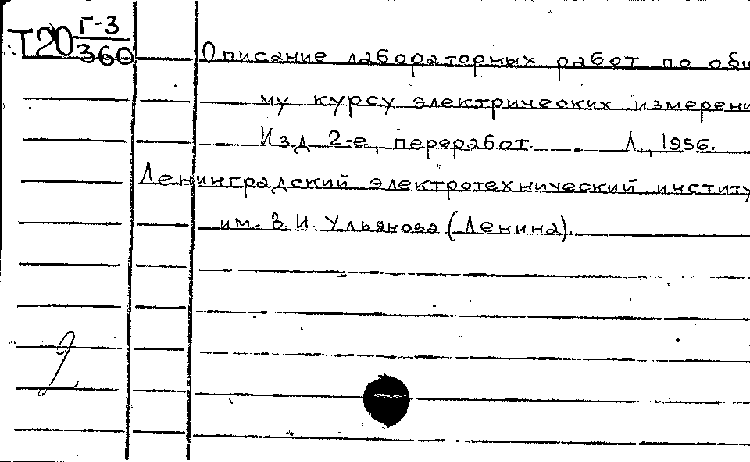 Т20 Г-3
360
Описание лабораторных работ по общ
му курсу электрических измерени
Изд 2-е, переработ. Л., 1956.
Ленинградский электротехнический институ
им. В. И. Ульянова (Ленина).
2